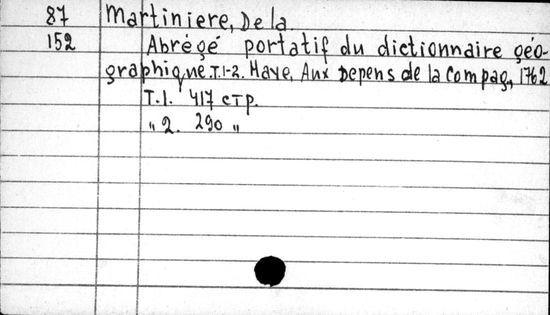 87 Martiniere, De la
152 Abrégé portatif du dictionnaire géo-
graphique. T.1-2. Haye, Aux Depens de la Compag., 1762
T.1. 417 стр.
" 2. 290 "